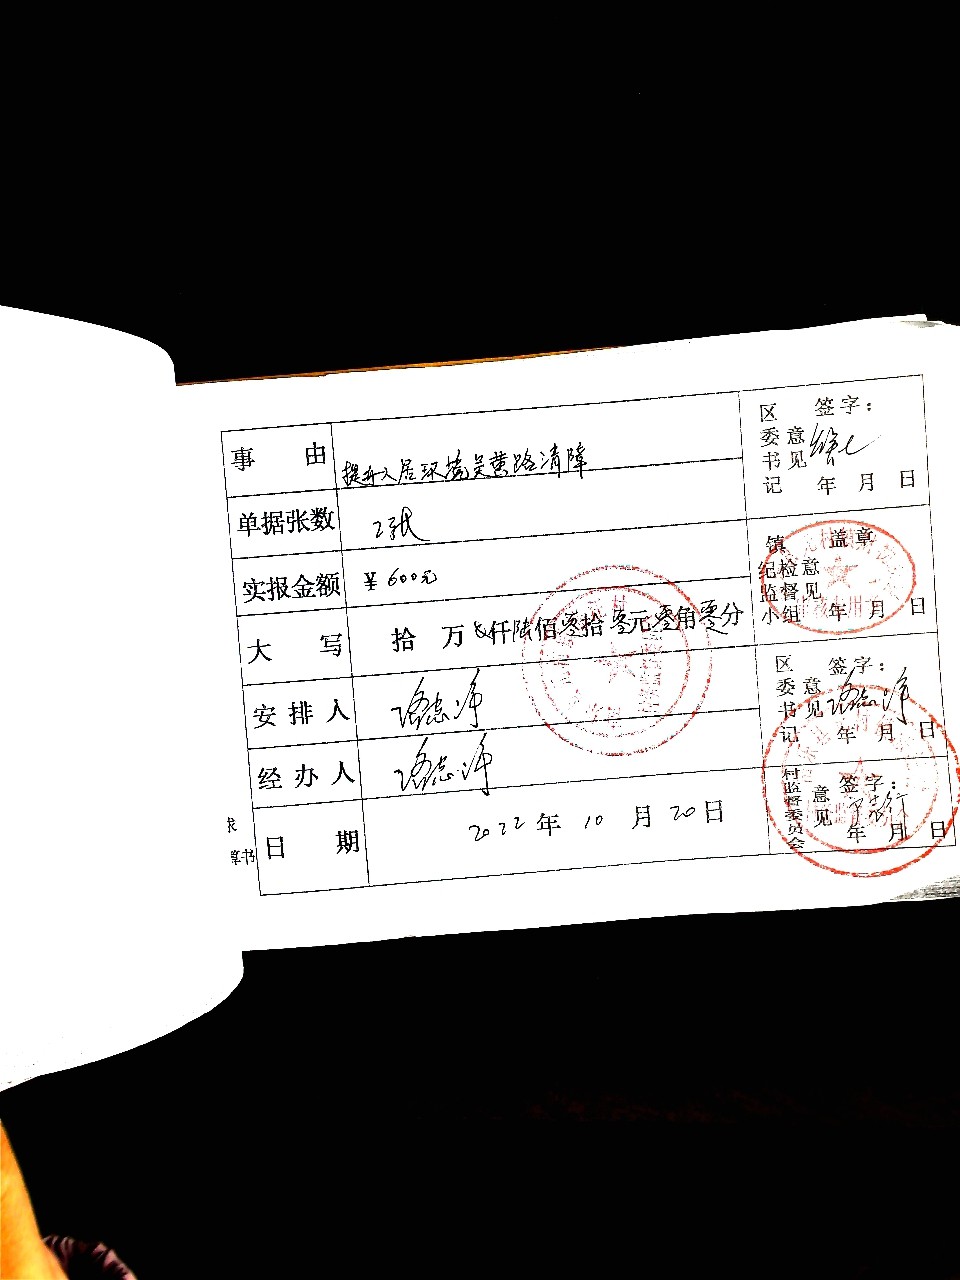 事 由
提升人居环境吴黄路清障
单据张数
2张
实报金额
¥600元
大 写
拾 万 仟陆佰零拾零元零角零分
安 排 人
经 办 人
日 期
2022年10月20日
区委书记意见
签字：
年 月 日
镇纪检监督小组意见
盖章
年 月 日
区委书记意见
签字：
年 月 日
村监督委员会意见
签字：
年 月 日
求
算书